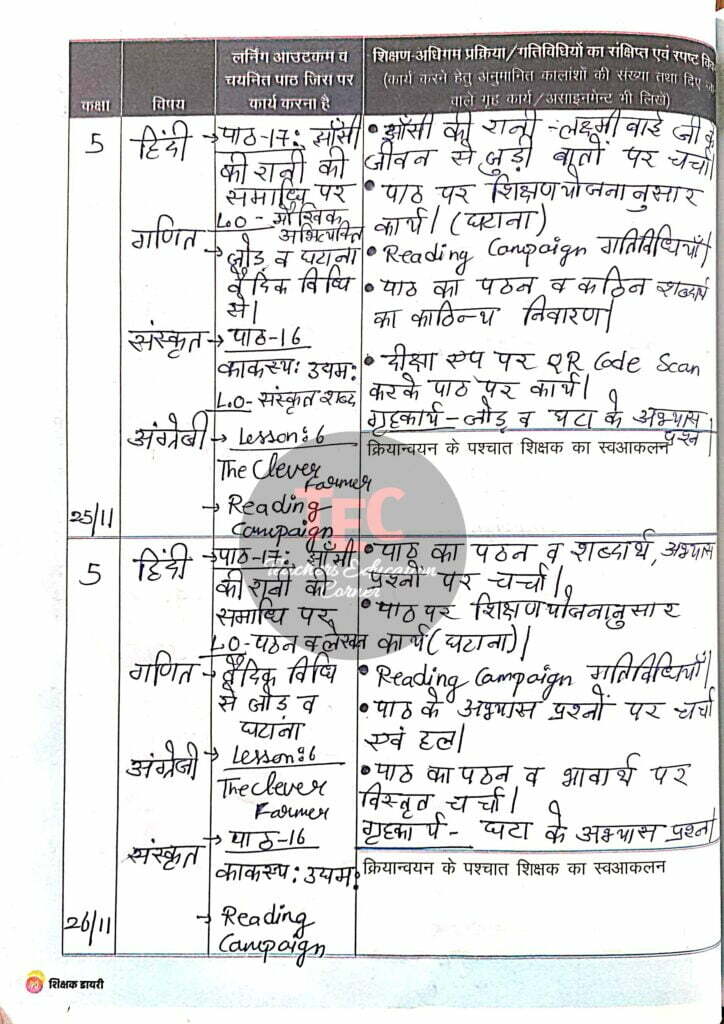 कक्षा
विषय
लर्निंग आउटकम व
चयनित पाठ जिस पर
कार्य करना है
शिक्षण-अधिगम प्रक्रिया/गतिविधियों का संक्षिप्त एवं स्पष्ट
(कार्य करने हेतु अनुमानित कालांशों की संख्या तथा दिए
वाले गृह कार्य/असाइनमेन्ट भी लिखें)
5
हिंदी
→ पाठ-17: झाँसी
की रानी की
समाधि पर
L.O- मौखिक
अभिव्यक्ति
गणित
→ जोड़ व घटाना
वैदिक विधि
से।
संस्कृत
→ पाठ-16
काकस्य: उद्यम:
L.O- संस्कृत शब्द
अंग्रेजी
→ Lesson:6
The Clever
Farmer
→ Reading
Campaign
25/11
• झाँसी की रानी - लक्ष्मी बाई जी के
जीवन से जुड़ी बातों पर चर्चा।
• पाठ पर शिक्षणयोजनानुसार
कार्य। (घटाना)
• Reading Campaign गतिविधियाँ।
• पाठ का पठन व कठिन शब्दार्थ
का काठिन्य निवारण।
• दीक्षा एप पर QR Code Scan
करके पाठ पर कार्य।
गृहकार्य - जोड़ व घटा के अभ्यास
प्रश्न।
क्रियान्वयन के पश्चात शिक्षक का स्वआकलन
5
हिंदी
→ पाठ-17: झाँसी
की रानी की
समाधि पर
L.O- पठन व लेखन
गणित
→ वैदिक विधि
से जोड़ व
घटाना
अंग्रेजी
→ Lesson:6
The Clever
Farmer
संस्कृत
→ पाठ-16
काकस्य: उद्यम:
→ Reading
Campaign
26/11
• पाठ का पठन व शब्दार्थ, अभ्यास
प्रश्नों पर चर्चा।
• पाठ पर शिक्षणयोजनानुसार
कार्य (घटाना)।
• Reading Campaign गतिविधियाँ।
• पाठ के अभ्यास प्रश्नों पर चर्चा
एवं हल।
• पाठ का पठन व भावार्थ पर
विस्तृत चर्चा।
गृहकार्य - घटा के अभ्यास प्रश्न।
क्रियान्वयन के पश्चात शिक्षक का स्वआकलन
TEC
Teachers Education
Corner
शिक्षक डायरी